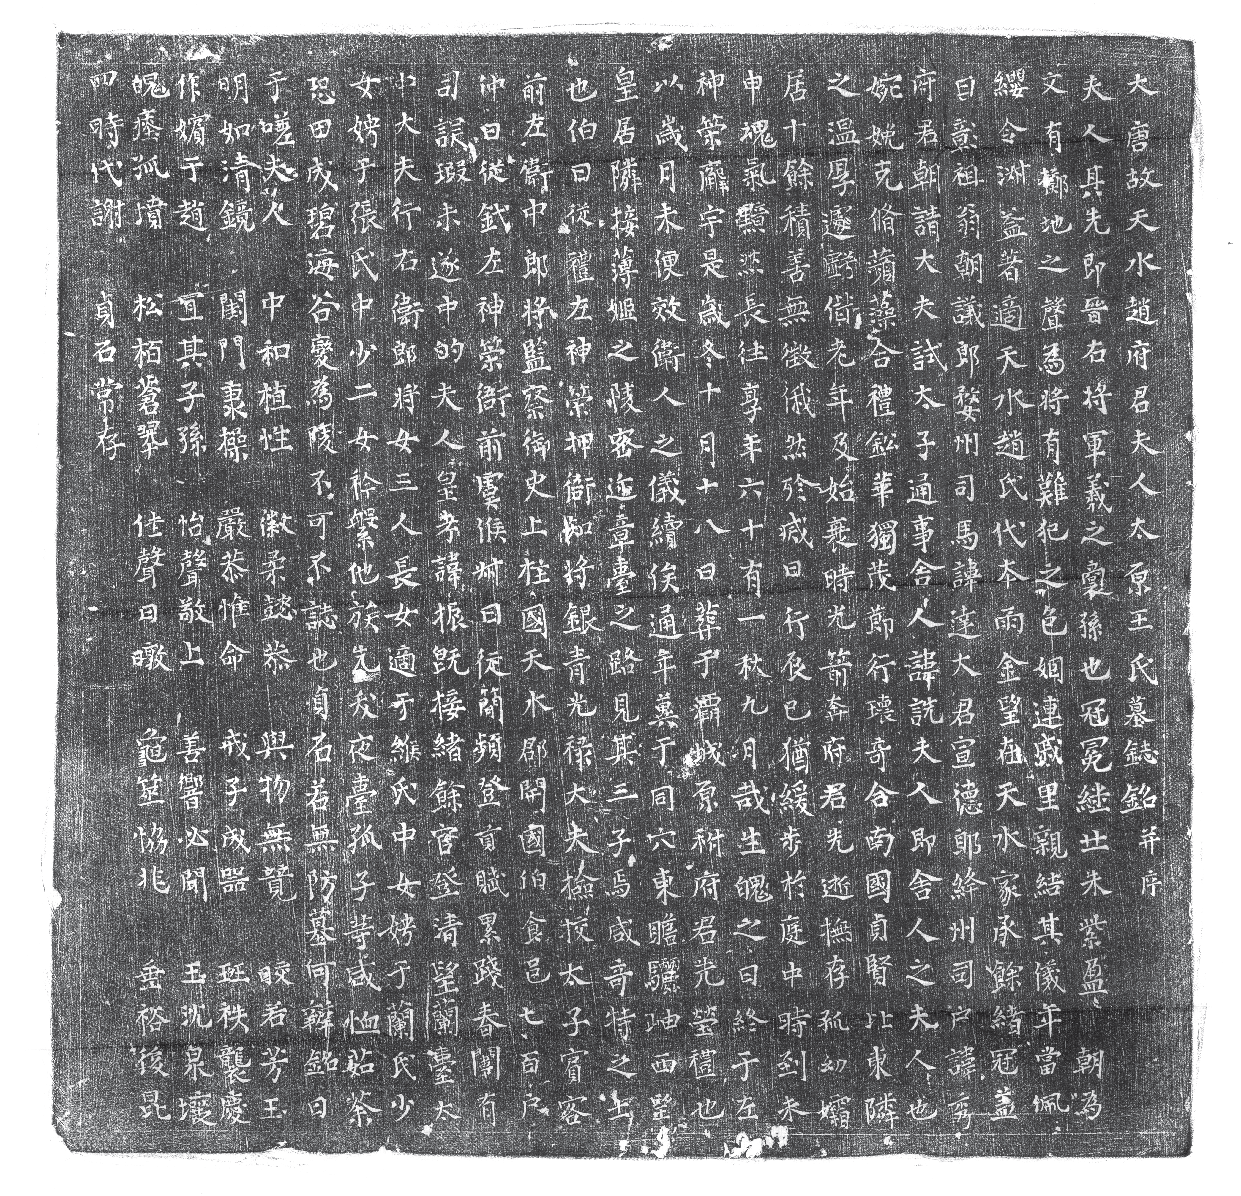 大唐故天水趙府君夫人太原王氏墓誌銘并序
夫人其先即晉右將軍羲之裔孫也冠冕繼世朱紫盈朝為
文有擲地之聲為將有難犯之色姻連戚里親結其儀年當佩
纓令淑益著適天水趙氏代本雨金望在天水家承餘緒冠蓋
自彰祖翁朝議郎婺州司馬諱達大君宣德郎絳州司戶諱秀
府君朝請大夫試太子通事舍人諱詵夫人即舍人之夫人也
婉娩克脩蘋藻合禮鉛華獨茂節行瓌奇合南國貞賢比東隣
之溫厚遽虧偕老年及始衰時光箭奔府君先逝撫存孤幼孀
居十餘積善無徵俄然殄慼日行辰巳猶緩步於庭中時到未
申魂氣黯然長往享年六十有一秋九月哉生魄之日終于左
神策廨宇是歲冬十月十八日葬于灞城原祔府君先塋禮也
以歲月未便效衛人之儀續俟通年冀于同穴東瞻驪岫西望
皇居隣接薄姬之陵密迩章臺之路見其三子焉咸奇特之士
也伯曰從禮左神策押衙知將銀青光祿大夫檢挍太子賓客
前左衛中郎將監察御史上柱國天水郡開國伯食邑七百戶
仲曰從鉞左神策衙前虞候新曰從簡頻登貢賦累踐春闈有
司誤瑕未遂中的夫人皇考諱振既接緒餘官登清望蘭臺太
中大夫行右衛郎將女三人長女適于緱氏中女娉于蘭氏少
女娉于張氏中少二女衿槃他族先歿夜臺孤子等咸恤茹荼
恐田成碧海谷變為陵不可不誌也貞石若無防墓何辭銘曰
于嗟夫人　中和植性　徽柔懿恭　與物無競　皎若芳玉
明如清鏡　閨門秉操　嚴恭惟命　戒子成器　班祑襲慶
作嬪于趙　宜其子孫　怡聲敬上　善響必聞　玉沉泉壤
魄瘞孤墳　松栢蒼翠　佳聲日暾　龜筮恊兆　垂裕後昆
四時代謝　貞石常存